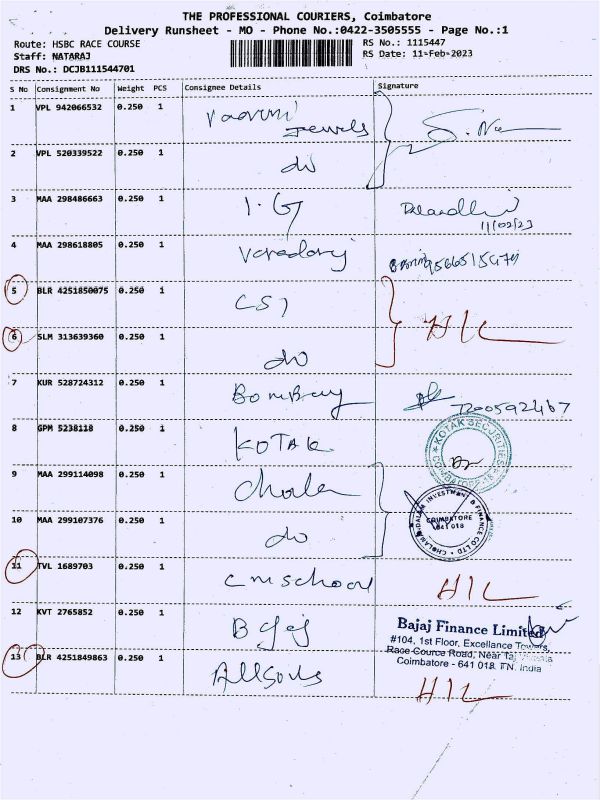 THE PROFESSIONAL COURIERS, Coimbatore
Delivery Runsheet - MO - Phone No.:0422-3505555 - Page No.:1
Route: HSBC RACE COURSE RS No.: 1115447
Staff: NATARAJ RS Date: 11-Feb-2023
DRS No.: DCJB111544701
S No Consignment No Weight PCS Consignee Details Signature
1 VPL 942066532 0.250 1
Jewels
2 VPL 520339522 0.250 1 do
3 MAA 298486663 0.250 1 I.G
11/02/23
4 MAA 298618805 0.250 1 Varadaraj
5 BLR 4251850075 0.250 1 CSI
6 SLM 313639360 0.250 1 do HIL
7 KUR 528724312 0.250 1 Bombay
8 GPM 5238118 0.250 1 KOTAK
KOTAK SECURITIES
COIMBATORE - 18
9 MAA 299114098 0.250 1 Chola
10 MAA 299107376 0.250 1 do
CHOLAMANDALAM INVESTMENT & FINANCE CO LTD
COIMBATORE
641 018
11 TVL 1689703 0.250 1 cmschool HIL
12 KVT 2765852 0.250 1 Bajaj
Bajaj Finance Limited
#104, 1st Floor, Excellance Towers,
Race Cource Road, Near Taj
Coimbatore - 641 018. TN. India
13 BLR 4251849863 0.250 1 AllSouls HIL